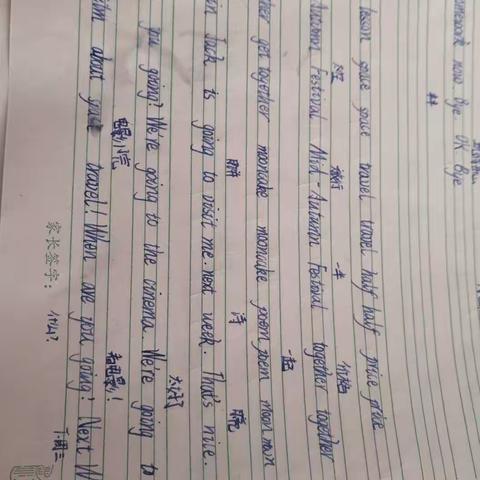 now. Bye. OK. Bye
lesson space space travel travel half half price price
太空 旅行 一半 价格
Autumn Festival Mid-Autumn Festival together together
一起
get together mooncake mooncake poem poem moon moon
诗
Jack is going to visit me next week. That's nice.
you going? We're going to the cinema. We're going to
about space travel! When are you going? Next W
看电影!
家长签字:
什么?
下周三